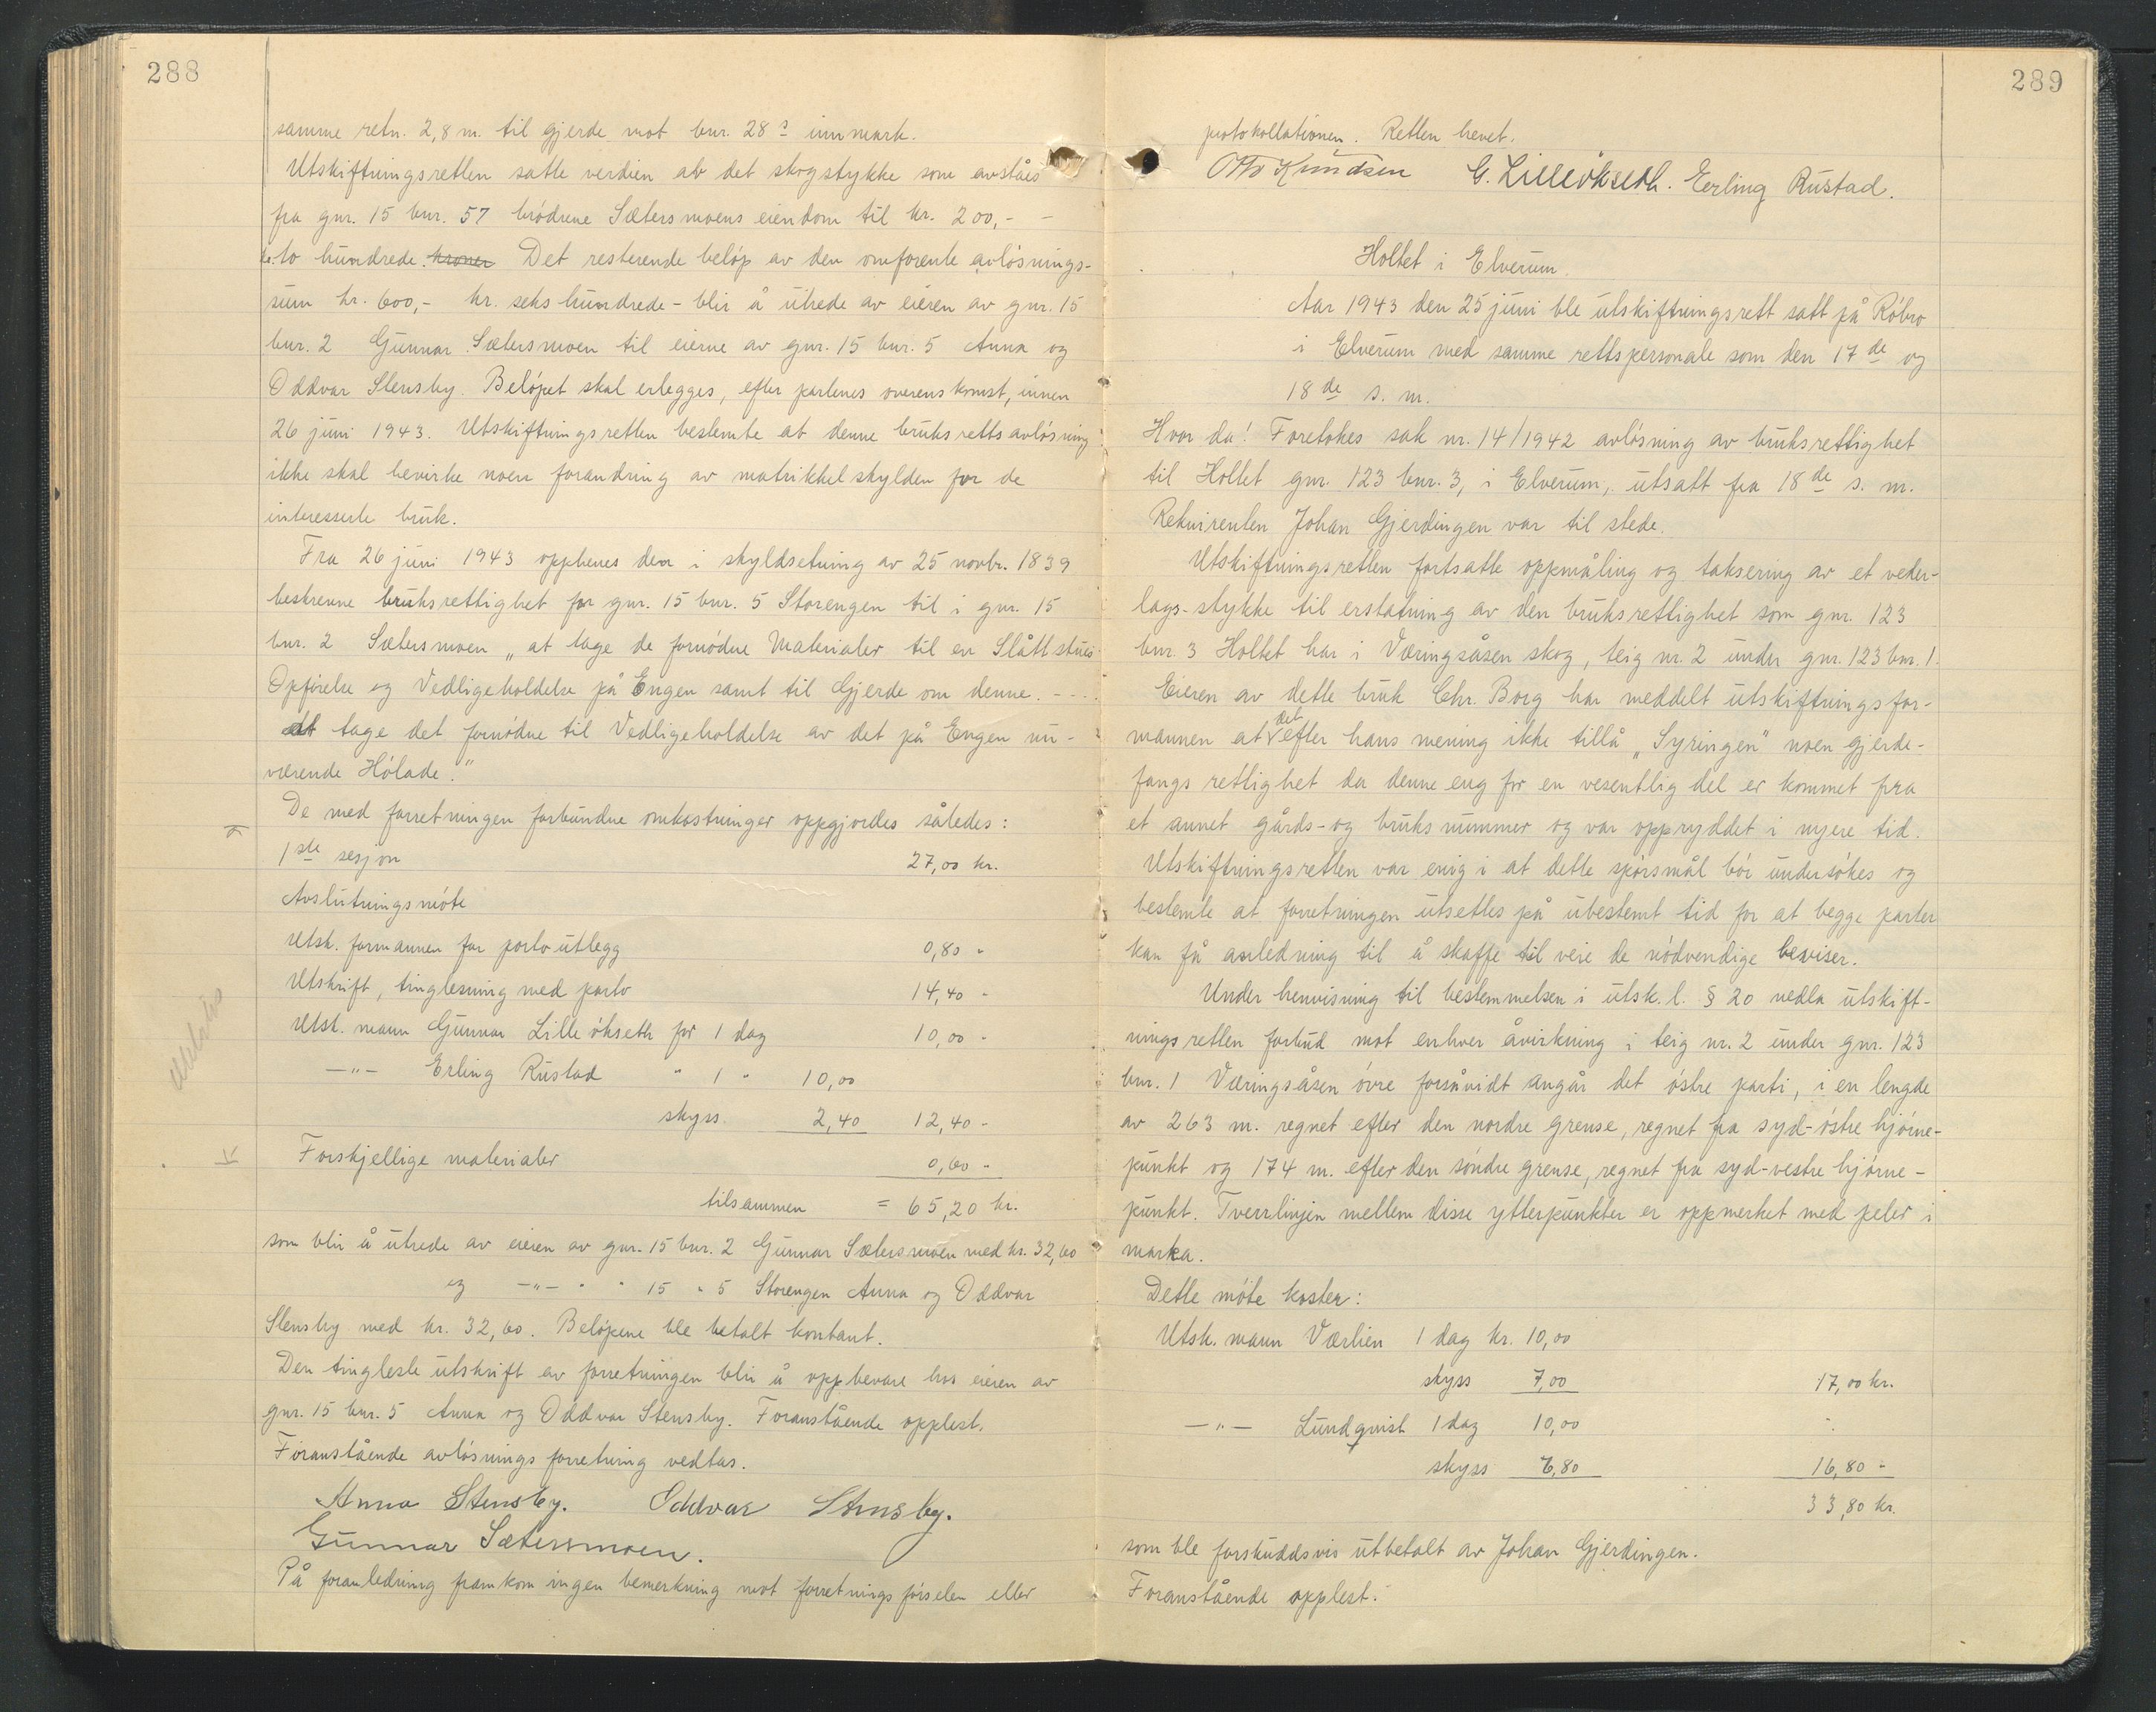 288
samme retn. 2,8 m. til gjerde mot bnr. 28s innmark.
Utskiftningsretten satte verdien av det skogstykke som avståes
fra gnr. 15 bnr. 57 brødrene Sætersmoens eiendom til kr. 200,- -
kr. to hundrede. kroner Det resterende beløp av den omforente avløsnings-
sum kr. 600,- kr. seks hundrede - blir å utrede av eieren av gnr. 15
bnr. 2 Gunnar Sætersmoen til eierne av gnr. 15 bnr. 5 Anna og
Oddvar Stensby. Beløpet skal erlegges, efter partenes overenskomst, innen
26 juni 1943. Utskiftningsretten bestemte at denne bruksrettsavløsning
ikke skal bevirke noen forandring av matrikkelskylden for de
interesserte bruk.
Fra 26 juni 1943 opphenes den i skyldsetning av 25 novbr. 1839
beskrevne bruksrettighet for gnr. 15 bnr. 5 Storengen til i gnr. 15
bnr. 2 Sætersmoen „at tage de fornødne Materialer til en Slåttstues
Opførelse og Vedligeholdelse på Engen samt til Gjerde om denne. - - . .
at tage det fornødne til Vedligeholdelse av det på Engen nu-
værende Hølade."
De med forretningen forbundne omkostninger oppgjordes således:
1ste sesjon 27,00 kr.
Avslutningsmøte
Utsk. formannen for porto utlegg 0,80 "
Utskrift, tinglesning med porto 14,40 "
Utsk. mann Gunnar Lilleøkseth for 1 dag 10,00 "
—"— Erling Rustad " 1 " 10,00
skyss 2,40 12,40 "
Forskjellige materialer 0,60 "
tilsammen = 65,20 kr.
som blir å utrede av eieren av gnr. 15 bnr. 2 Gunnar Sætersmoen med kr. 32,60
og —"— " " 15 " 5 Storengen Anna og Oddvar
Stensby med kr. 32,60. Beløpene ble betalt kontant.
Den tingleste utskrift av forretningen blir å oppbevare hos eieren av
gnr. 15 bnr. 5 Anna og Oddvar Stensby. Foranstående opplest.
Foranstående avløsningsforretning vedtas.
Anna Stensby. Oddvar Stensby.
Gunnar Sætersmoen.
På foranledning framkom ingen bemerkning mot forretningsførselen eller
289
protokollationen. Retten hevet.
Otto Knudsen G. Lilleökseth. Erling Rustad.
Holtet i Elverum.
Aar 1943 den 25 juni ble utskiftningsrett satt på Røbro
i Elverum med samme rettspersonale som den 17de og
18de s. m.
Hvor da! Foretokes sak nr. 14/1942 avløsning av bruksrettighet
til Holtet gnr. 123 bnr. 3, i Elverum, utsatt fra 18de s. m.
Rekvirenten Johan Gjerdingen var til stede.
Utskiftningsretten fortsatte oppmåling og taksering av et veder-
lags-stykke til erstatning av den bruksrettighet som gnr. 123
bnr. 3 Holtet har i Væringsåsen skog, teig nr. 2 under gnr. 123 bnr. 1.
Eieren av dette bruk Chr. Borg har meddelt utskiftningsfor-
mannen at det efter hans mening ikke tillå „Syringen" noen gjerde-
fangs rettighet da denne eng for en vesentlig del er kommet fra
et annet gårds- og bruksnummer og var oppryddet i nyere tid.
Utskiftningsretten var enig i at dette spørsmål bør undersøkes og
bestemte at forretningen utsettes på ubestemt tid for at begge parter
kan få anledning til å skaffe til veie de nødvendige beviser.
Under henvisning til bestemmelsen i utsk. l. § 20 nedla utskift-
ningsretten forbud mot enhver åvirkning i teig nr. 2 under gnr. 123
bnr. 1 Væringsåsen øvre forsåvidt angår det østre parti, i en lengde
av 263 m. regnet efter den nordre grense, regnet fra syd-østre hjørne-
punkt og 174 m. efter den søndre grense, regnet fra syd-vestre hjørne-
punkt. Tverrlinjen mellem disse ytterpunkter er oppmerket med peler i
marka.
Dette møte koster:
Utsk. mann Værlien 1 dag kr. 10,00
skyss 7,00 17,00 kr.
—"— Lundqvist 1 dag 10,00
skyss 6,80 16,80 "
33,80 kr.
som ble forskuddsvis utbetalt av Johan Gjerdingen.
Foranstående opplest.